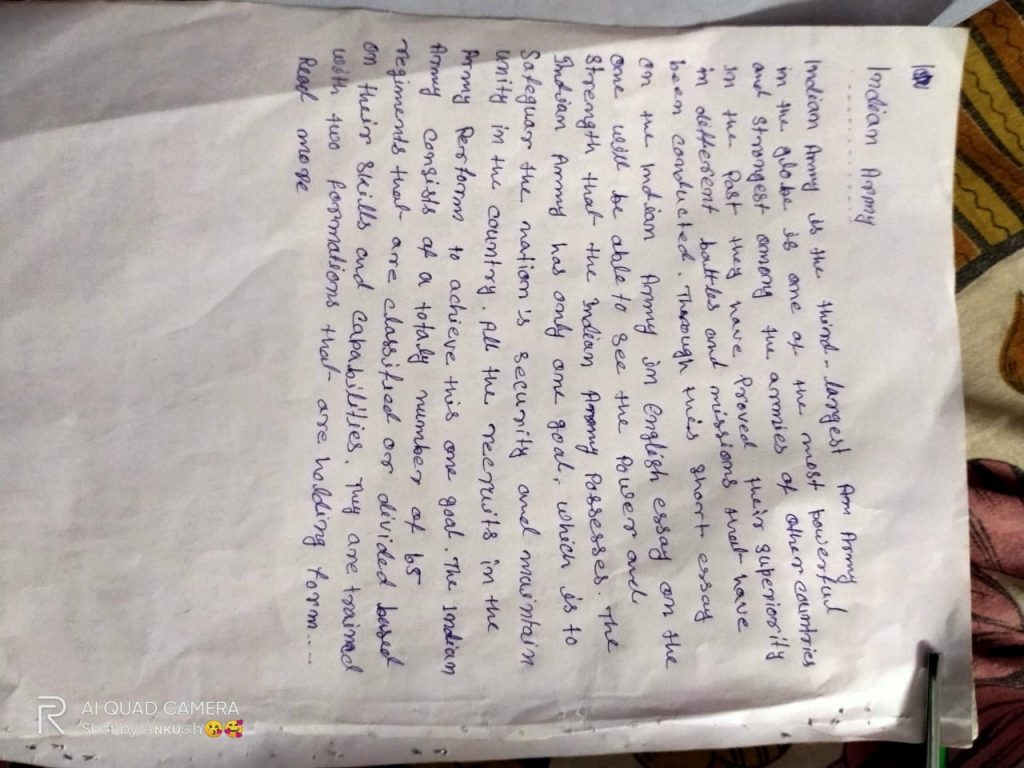 Indian Army
Indian Army is the third-largest Am Army
in the globe is one of the most powerful
and strongest among the armies of other countries
in the Past they have Proved their superiority
in different battles and missions that have
been conducted. Through this short essay
on the Indian Army in English essay on the
one will be able to see the Power and
Strength that the Indian Army Possesses. The
Indian Army has only one goal, which is to
Safeguar the nation's security and maintain
unity in the country. All the recruits in the
Army Perform to achieve this one goal. The Indian
Army consists of a totaly number of 65
regiments that are classified or divided based
on their skills and capabilities. They are trained
with two formations that are holding form...
Read more
AI QUAD CAMERA
Shot by ANKUSh😘🥰